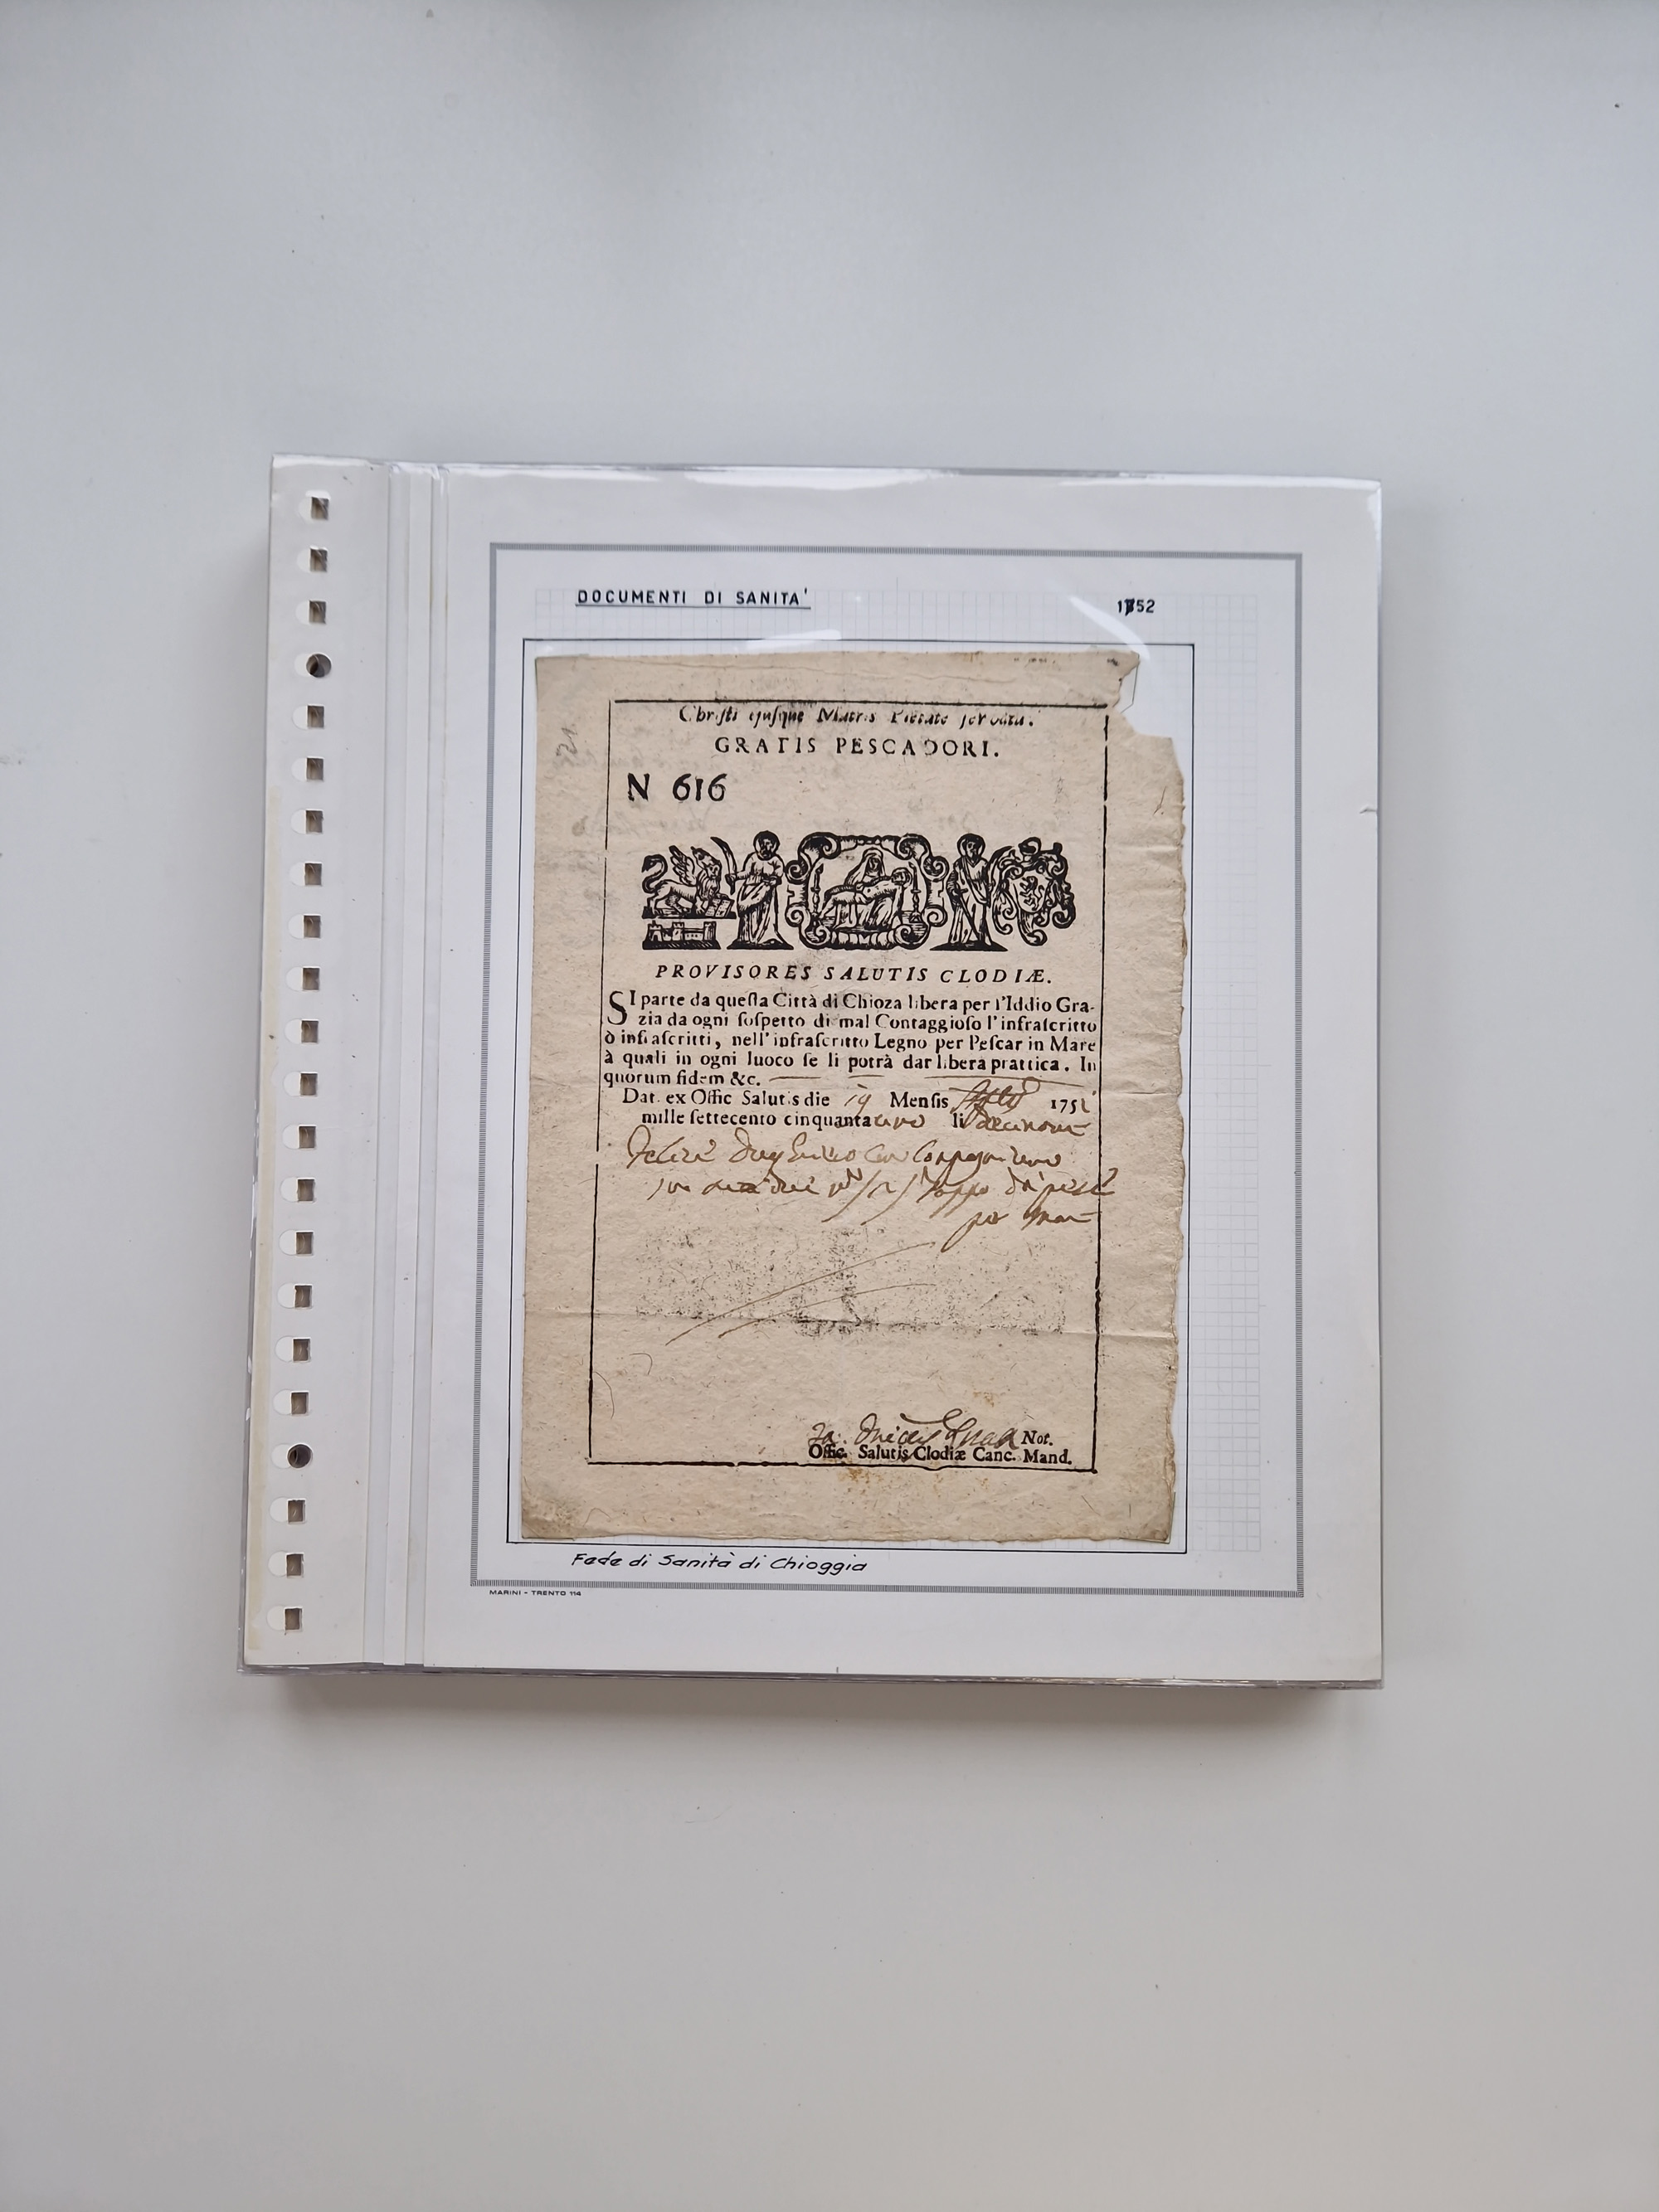 DOCUMENTI DI SANITA'
1752
Christi ejusque Matris Pietate servata.
GRATIS PESCADORI.
N 616
PROVISORES SALUTIS CLODIÆ.
SI parte da queſta Città di Chioza libera per l'Iddio Gra-
zia da ogni ſoſpetto di mal Contaggioſo l'infraſcritto
ò infraſcritti, nell'infraſcritto Legno per Peſcar in Mare
à quali in ogni luoco ſe li potrà dar libera prattica. In
quorum fidem &c.
Dat. ex Offic Salutis die 19 Mensis 1751
mille ſettecento cinquanta uno li decinove
con
da
per mar
Not.
Offic. Salutis Clodiæ Canc. Mand.
Fede di Sanità di Chioggia
MARINI - TRENTO 114